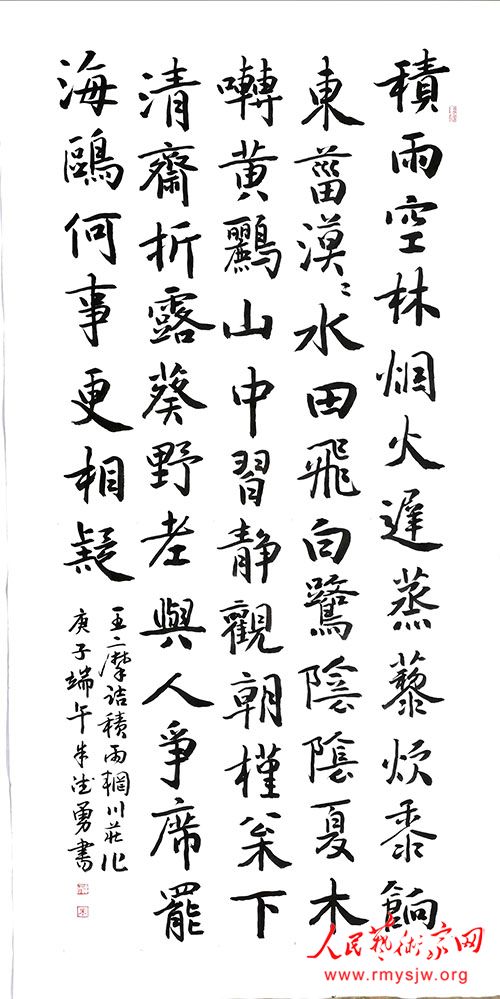 積雨空林烟火遲蒸藜炊黍餉
東菑漠〻水田飛白鷺陰陰夏木
囀黄鸝山中習静觀朝槿枀下
清齋折露葵野老與人爭席罷
海鷗何事更相疑
王摩詰積雨輞川莊作
庚子端午朱德勇書
人民藝術家网
www.rmysjw.org